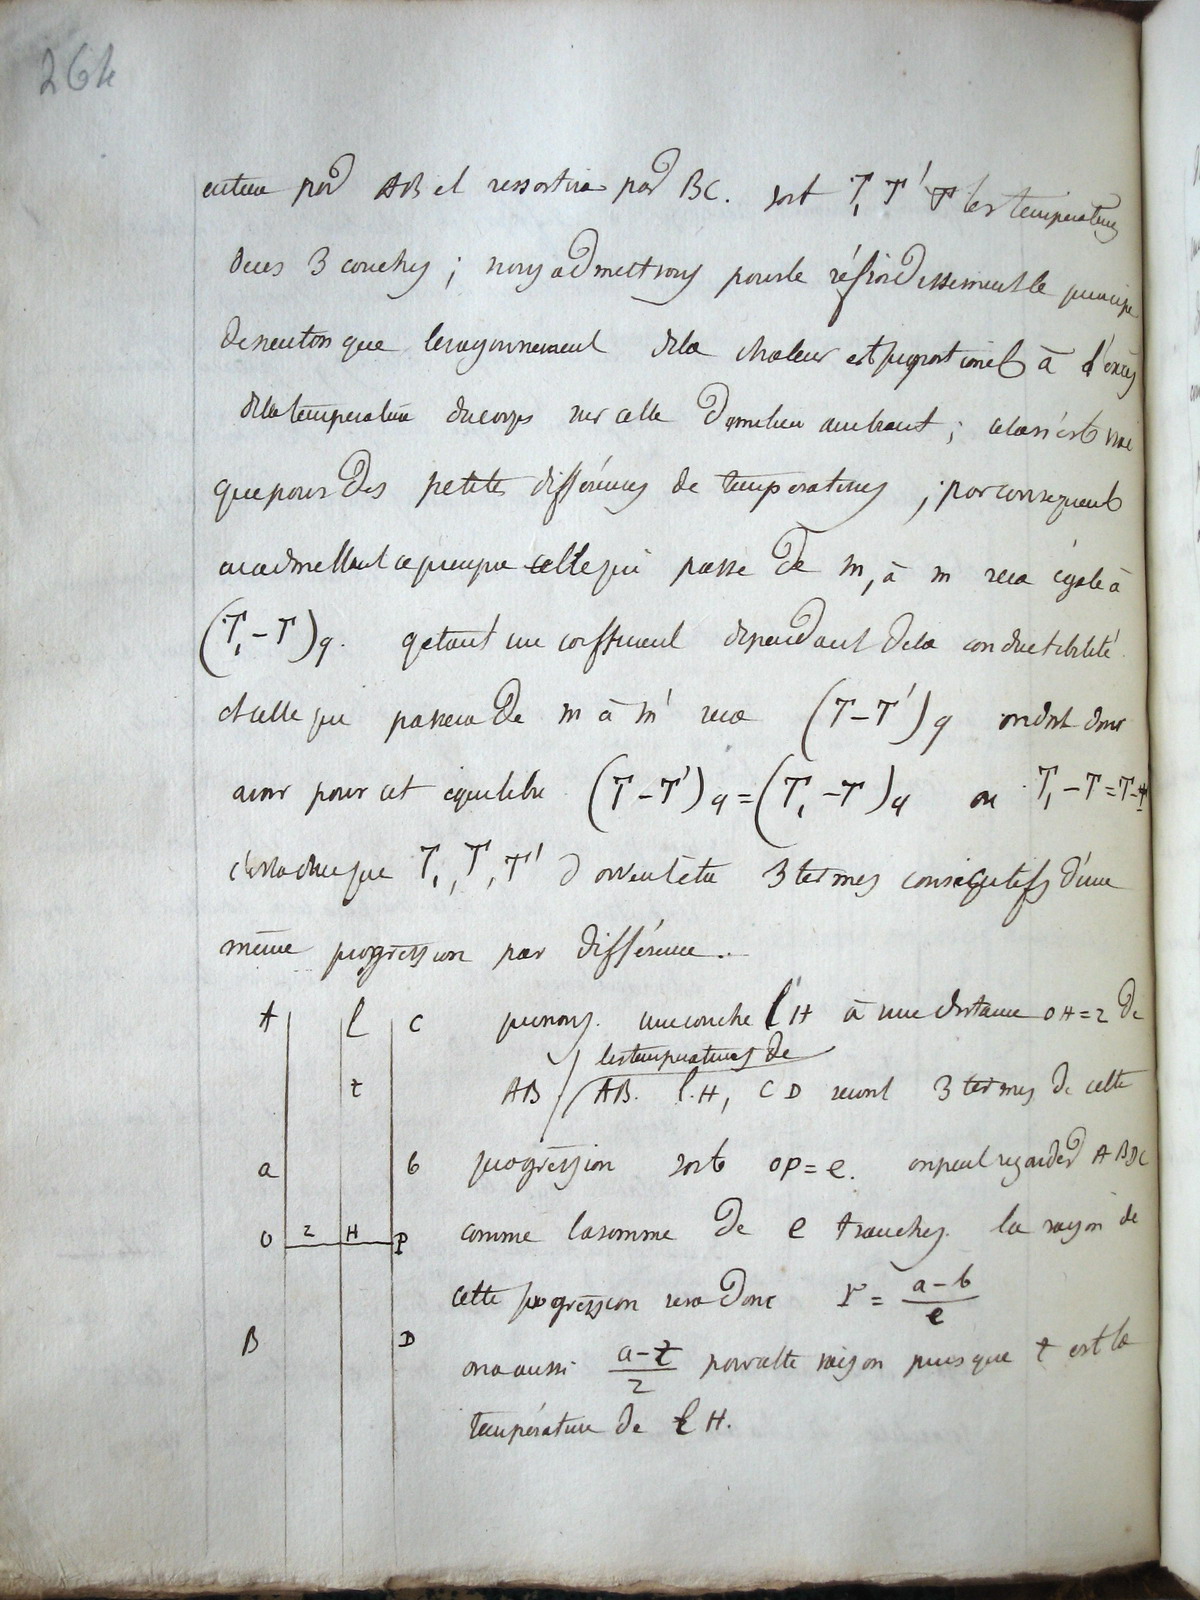 264
entrera par AB et ressortira par BC. soit T, T' T les temperatures
deces 3 couches ; nous admettrons pourle réfroidissement le principe
deneuton que lerayonnement dela chaleur estproportionel à l'excès
delatempérature ducorps sur celle dumilieu ambiant ; celan'est vrai
quepour des petites différences de temperatures ; parconsequent
enadmettant ceprincipe cellequi passe de m, à m sera égale à
(T, - T)q. qétant un coefficient dépendant dela conductibilité
etcelle qui passera de m à m' sera (T - T')q ondoit donc
avoir pour cet équilibre (T - T')q = (T, - T)q ou T, - T = T - T'
c'estadireque T,, T, T' doiventêtre 3 termes consécutifs d'une
même progression par différence.
A l C prenons. unecouche l'H à une distance OH = z de
lestemperatures de
t AB AB. l.H, CD seront 3 termes de cette
a b progression soit OP = e. onpeutregarder ABDC
O z H P comme lasomme de e tranches. la raison de
cette progression sera donc r = a-b/e
B D onaaussi a-t/z pourcette raison puisque t est la
température de lH.